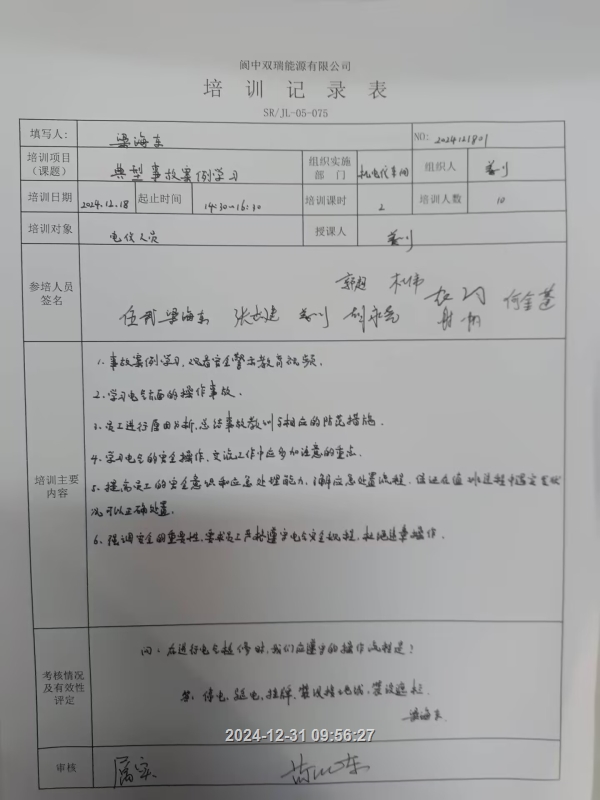 阆中双瑞能源有限公司
培训记录表
SR/JL-05-075
填写人： 梁海东 NO: 2024121801
培训项目（课题） 典型事故案例学习 组织实施部门 机电仪车间 组织人
培训日期 2024.12.18 起止时间 14:30-16:30 培训课时 2 培训人数 10
培训对象 电仪人员 授课人
参培人员签名
梁海东 何金蓬
培训主要内容
1、事故案例学习，观看安全警示教育视频。
2、学习电气方面的操作事故。
3、员工进行原因分析，总结事故教训与相应的防范措施。
4、学习电气的安全操作，交流工作中应多加注意的重点。
5、提高员工的安全意识和应急处理能力，了解应急处置流程，保证在值班过程中遇突发状
况可以正确处置。
6、强调安全的重要性，要求员工严格遵守电气安全规程，杜绝违章操作。
考核情况及有效性评定
问：在进行电气检修时，我们应遵守的操作流程是？
答：停电，验电，挂牌，装设接地线，装设遮栏。
梁海东
2024-12-31 09:56:27
审核 属实